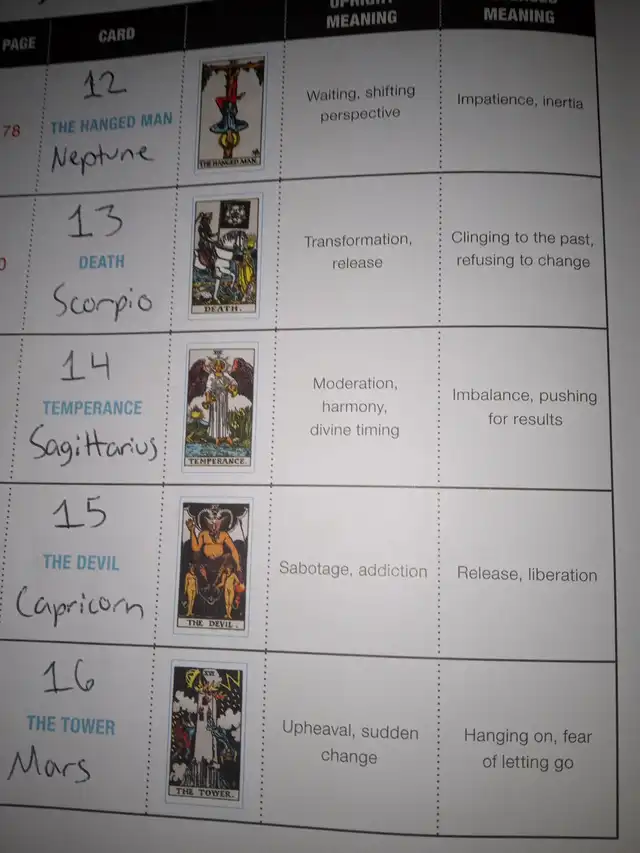 PAGE
CARD
UPRIGHT
MEANING
MEANING
78
12
THE HANGED MAN
Neptune
THE HANGED MAN.
Waiting, shifting
perspective
Impatience, inertia
13
DEATH
Scorpio
DEATH.
Transformation,
release
Clinging to the past,
refusing to change
14
TEMPERANCE
Sagittarius
TEMPERANCE.
Moderation,
harmony,
divine timing
Imbalance, pushing
for results
15
THE DEVIL
Capricorn
THE DEVIL.
Sabotage, addiction
Release, liberation
16
THE TOWER
Mars
XVI
THE TOWER.
Upheaval, sudden
change
Hanging on, fear
of letting go